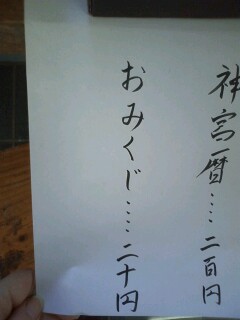 神宮暦‥‥二百円
おみくじ‥‥二十円